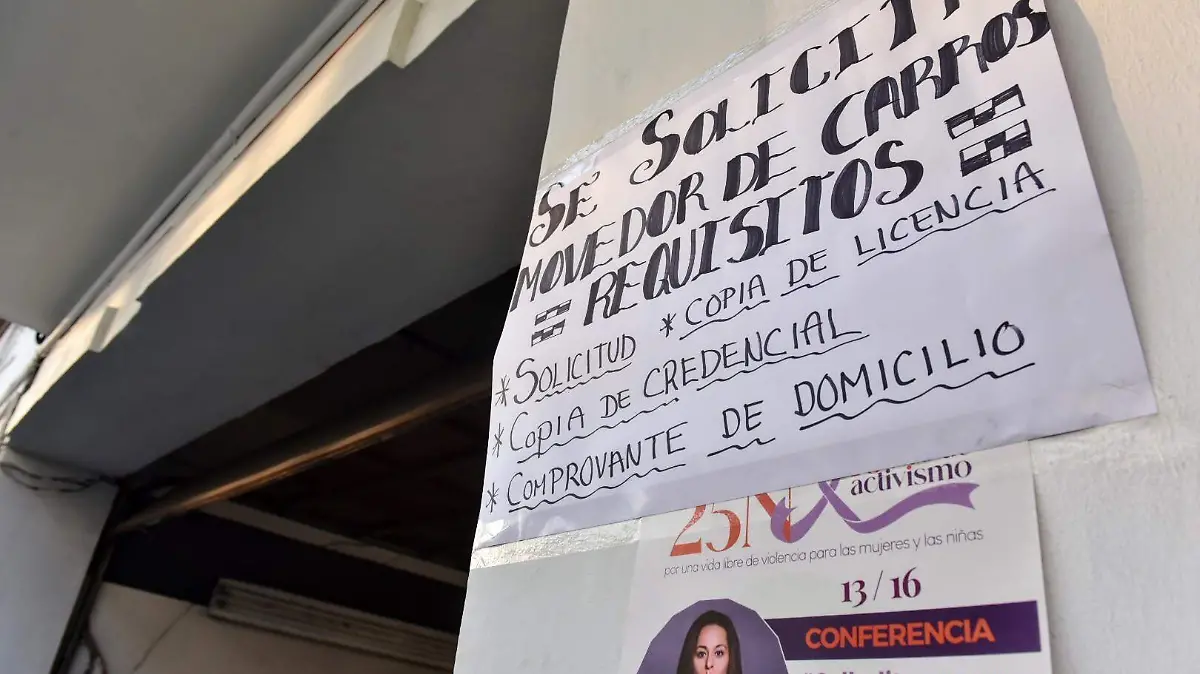 SE SOLICITA
MOVEDOR DE CARROS
REQUISITOS
* SOLICITUD * COPIA DE LICENCIA
* COPIA DE CREDENCIAL
* COMPROVANTE DE DOMICILIO
activismo
25N
por una vida libre de violencia para las mujeres y las niñas
13/16
CONFERENCIA